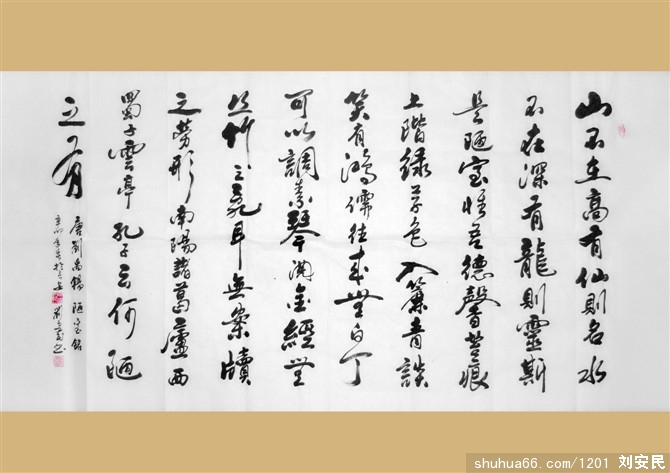 山不在高有仙則名水
不在深有龍則靈斯
是陋室惟吾德馨苔痕
上階緑草色入簾青談
笑有鴻儒往来無白丁
可以調素琴閱金經無
絲竹之亂耳無案牘
之勞形南陽諸葛廬西
蜀子雲亭孔子云何陋
之有
唐劉禹錫陋室銘
辛卯年
shuhua66.com/1201 刘安民